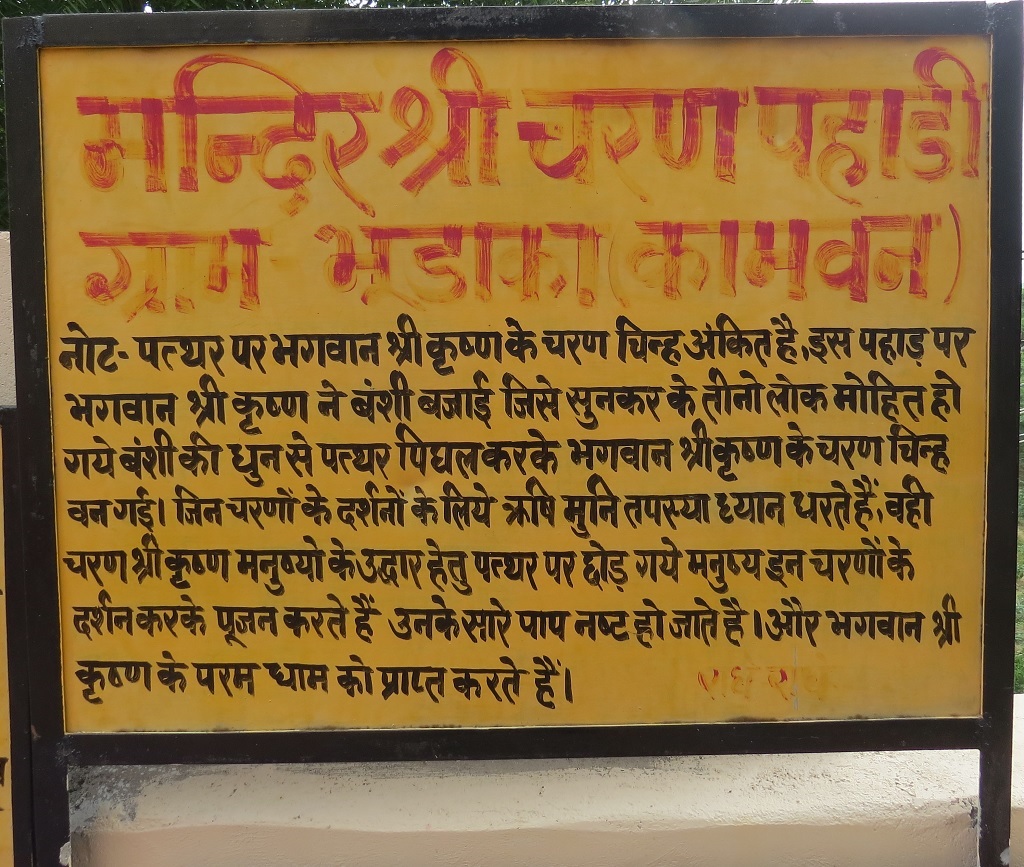 मन्दिर श्री चरण पहाडी
ग्राम भूडाका (कामवन)
नोट- पत्थर पर भगवान श्री कृष्ण के चरण चिन्ह अंकित है, इस पहाड़ पर
भगवान श्री कृष्ण ने बंशी बजाई जिसे सुनकर के तीनो लोक मोहित हो
गये बंशी की धुन से पत्थर पिघल करके भगवान श्री कृष्ण के चरण चिन्ह
वन गई। जिन चरणों के दर्शनों के लिये ऋषि मुनि तपस्या ध्यान धरते हैं, वही
चरण श्री कृष्ण मनुष्यो के उद्धार हेतु पत्थर पर छोड़ गये मनुष्य इन चरणों के
दर्शन करके पूजन करते हैं उनके सारे पाप नष्ट हो जाते है। और भगवान श्री
कृष्ण के परम धाम को प्राप्त करते हैं।
राधे राधे